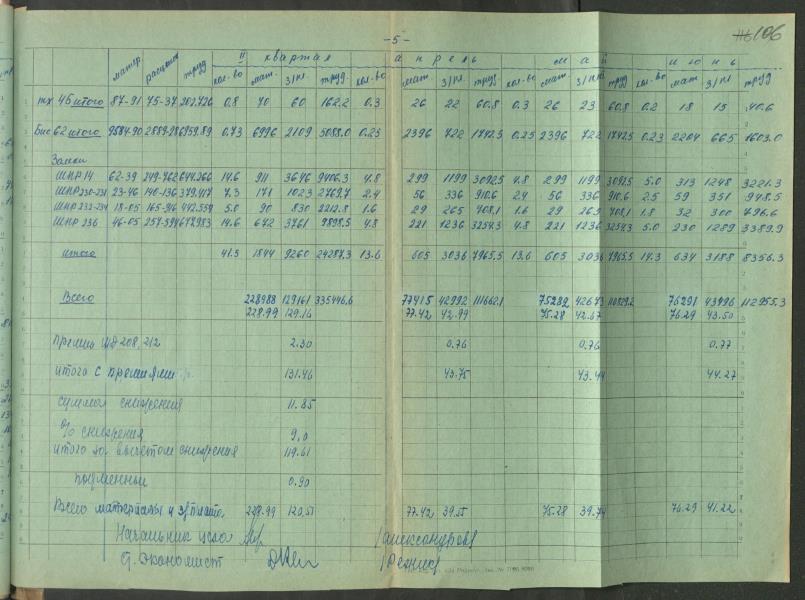 106
-5-
II квартал апрель май июнь
матер расцен труд кол-во мат. з/пл. труд. кол-во мат з/пл. труд. кол-во мат. з/пл. труд кол-во мат з/пл. труд
тх 46 итого 87-91 75-37 202.726 0,8 70 60 162.2 0.3 26 22 60.8 0.3 26 23 60,8 0.2 18 15 40.6
62 итого 9584-90 0,73 6996 2109 5088.0 0.25 2396 722 1742.5 0,25 2396 722 1742.5 0.23 2204 665 1603.0
Замки
ШНР 14 62-39 249-762 644.266 14.6 911 3646 9406.3 4.8 299 1199 3092,5 4.8 299 1199 3092.5 5.0 313 1248 3221.3
ШНР 230-231 23-46 140-136 379.417 7.3 171 1023 2769.7 2.4 56 336 910.6 2.4 56 336 910.6 2.5 59 351 948.5
ШНР 232-234 18-05 165-916 442.554 5.0 90 830 2212.8 1.6 29 265 708,1 1.6 29 265 708,1 1.8 32 300 796.6
ШНР 236 46-05 14.6 672 3761 9898.5 4,8 221 1236 3254.3 4.8 221 1236 3254.3 5.0 230 1289 3389.9
итого 41.5 1844 9260 24287,3 13.6 605 3036 7965,5 13,6 605 3036 7965.5 14.3 634 3188 8356.3
Всего 228988 129161 335446,6 77415 42992 111662,1 75282 42673 76291 43496 112955.3
228.99 129.16 77.42 42.99 75.28 42.67 76.29 43.50
Премии 208, 212 2.30 0.76 0.76 0.77
итого с премиями 131.46 43.75 43.44 44.27
сумма снижения 11.85
% снижения 9,0
итого за вычетом снижения 119.61
подменные 0.90
Всего материалы и з/плата 228.99 120,51 77.42 39.55 75.28 39.74 76.29 41.22
Начальник цеха /Александров/
Ст. экономист